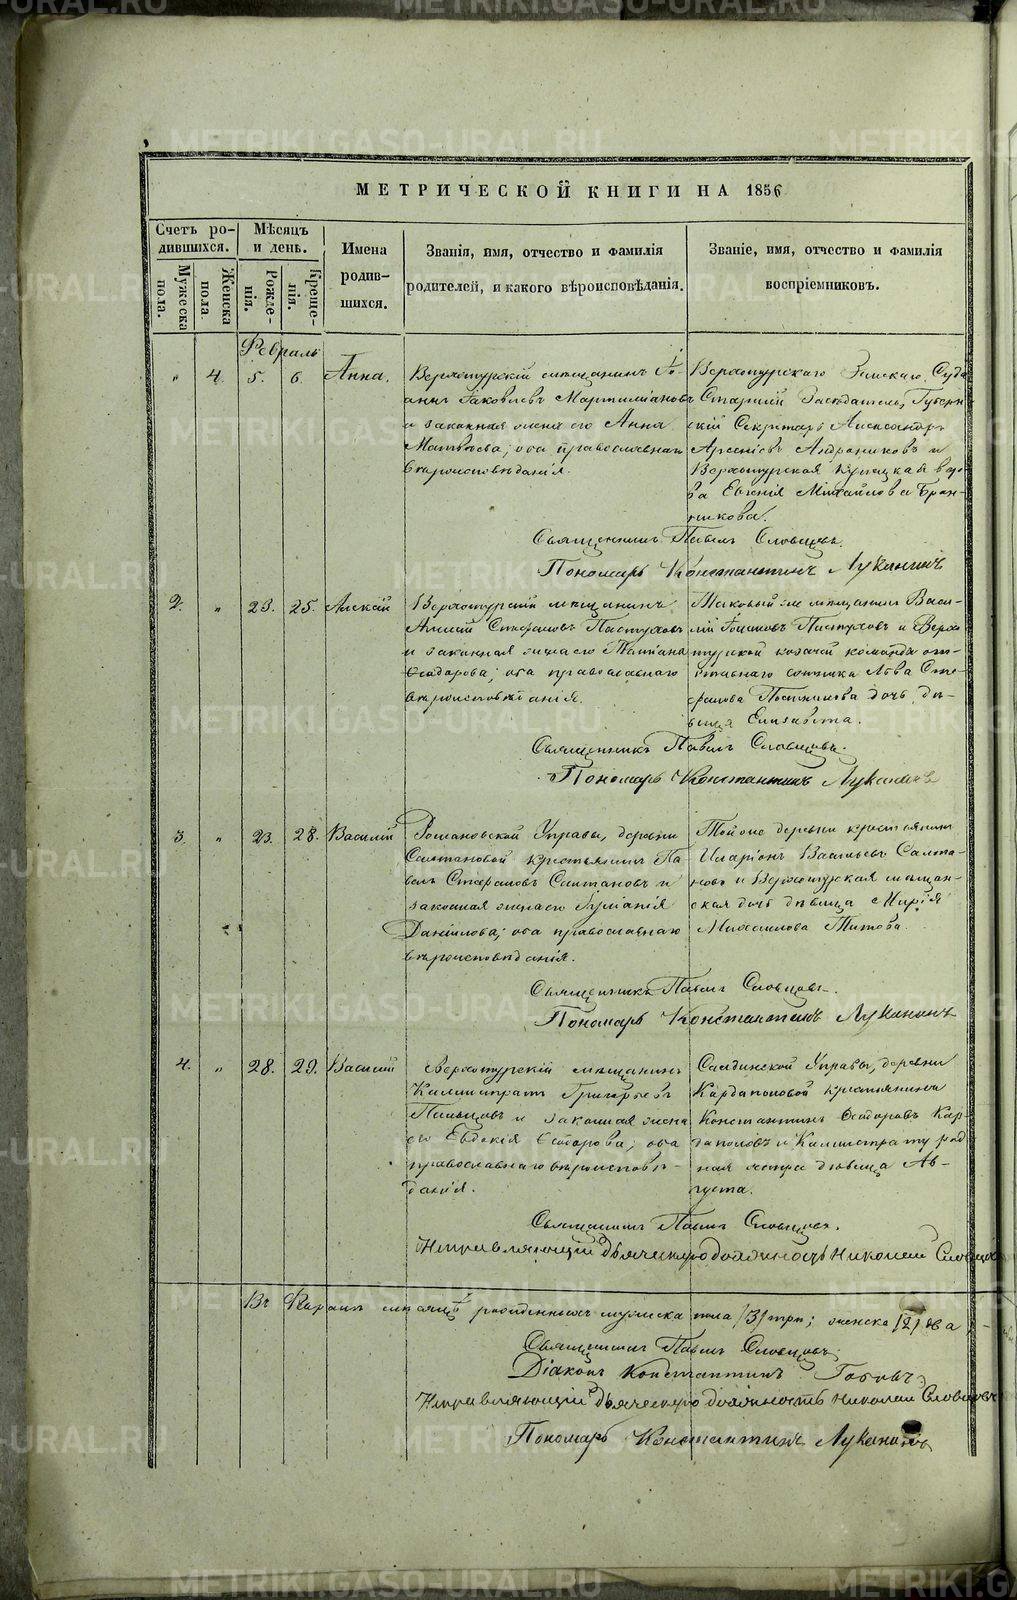 МЕТРИЧЕСКОЙ КНИГИ НА 1856
Счетъ ро-
дившихся.
Мѣсяцъ
и день.
Мужеска
пола.
Женска
пола
Рожде-
нія.
Креще-
нія.
Имена
родив-
шихся.
Званія, имя, отчество и фамилія
родителей, и какого вѣроисповѣданія.
Званіе, имя, отчество и фамилія
воспріемниковъ.
Февраль
" 4. 5. 6. Анна.
Верхотурскій мѣщанинъ Іо-
аннъ Іаковлевъ Мартиміановъ
и законная жена его Анна
Матвѣева; оба православнаго
вѣроисповѣданія.
Верхотурскаго Земскаго Суда
Старшій Засѣдатель, Губерн-
скій Секретарь Александръ
Арсеніевъ Андрониковъ и
Верхотурская купецкая вдо-
ва Евгенія Михайлова Брон-
никова.
Священникъ Павелъ Словцовъ.
Пономарь Константинъ Луканинъ
2. " 23. 25. Алексій
Верхотурскій мѣщанинъ
Алексій Стефановъ Пастуховъ
и законная жена его Татіана
Ѳеодорова; оба православнаго
вѣроисповѣданія.
Таковый же мѣщанинъ Васи-
лій Іоанновъ Пастуховъ и Верхо-
турской козачей команды от-
ставнаго сотника Льва Сте-
фанова Постникова дочь дѣ-
вица Елисавета.
Священникъ Павелъ Словцовъ.
Пономарь Константинъ Луканинъ
3. " 23. 28. Василій
Романовской Управы, деревни
Салтановой крестьянинъ Па-
велъ Стефановъ Салтановъ и
законная жена его Іуліанія
Даніилова; оба православнаго
вѣроисповѣданія.
Той же деревни крестьянинъ
Иларіонъ Васильевъ Салта-
новъ и Верхотурская мѣщан-
ская дочь дѣвица Марія
Михаилова Титова.
Священникъ Павелъ Словцовъ.
Пономарь Константинъ Луканинъ
4. " 28. 29. Василій
Верхотурскій мѣщанинъ
Каллистратъ Григорьевъ
Пальцовъ и законная жена
его Евдокія Ѳеодорова; оба
православнаго вѣроисповѣ-
данія.
Салдинской Управы, деревни
Кардаполовой крестьянинъ
Константинъ Ѳеодоровъ Кар-
даполовъ и Каллистрату род-
ная сестра дѣвица Ав-
густа.
Священникъ Павелъ Словцовъ.
Исправляющій дьяческую должность Николай Словцовъ
Въ Февралѣ мѣсяцѣ рожденныхъ мужеска пола /3/ три; женска /2/ два
Священникъ Павелъ Словцовъ.
Діаконъ Константинъ
Исправляющій дьяческую должность Николай Словцовъ
Пономарь Константинъ Луканинъ